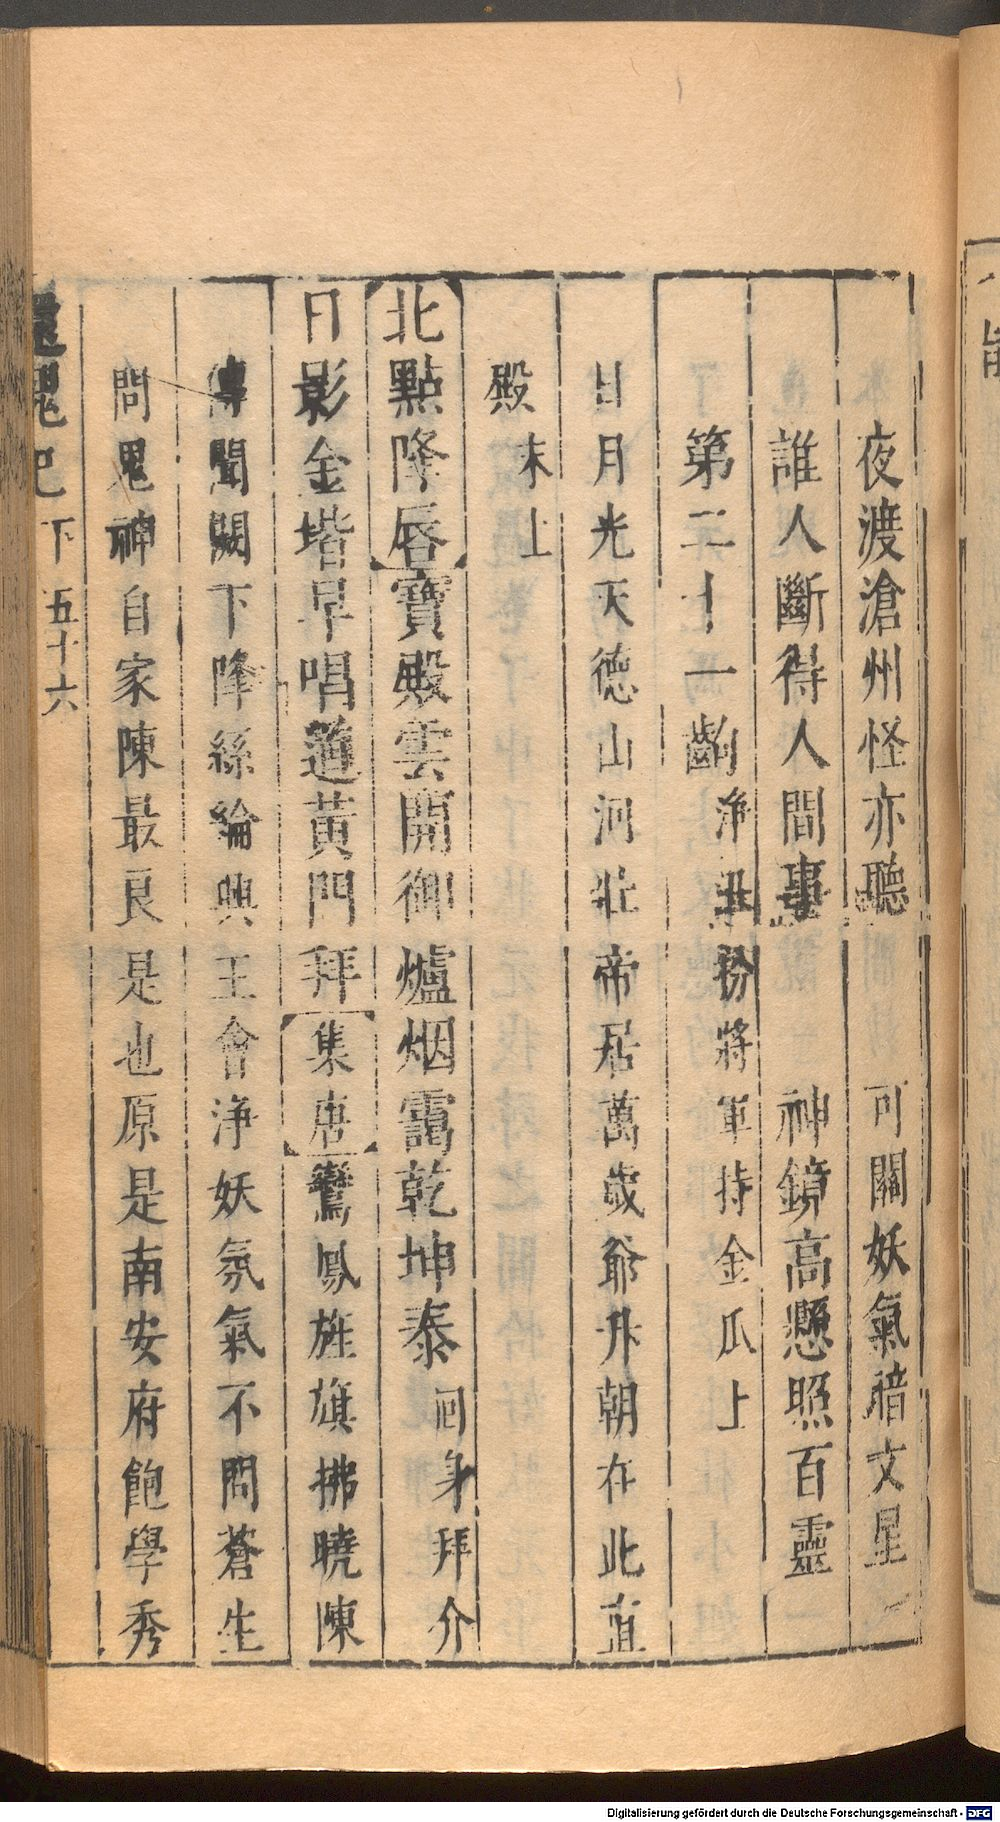 夜渡滄州怪亦聽　可關妖氣暗文星
誰人斷得人間事　神鏡高懸照百靈
第二十一齣 淨丑扮將軍持金瓜上
日月光天德山河壯帝居萬歲爺升朝在此直
殿 末上
北點降唇寶殿雲開御爐烟靄乾坤泰 回身拜介
日影金堦早唱道黃門拜集唐鸞鳳旌旗拂曉陳
傳聞闕下降絲綸興王會淨妖氛氣不問蒼生
問鬼神自家陳最良是也原是南安府飽學秀
還魂記 下 五十六
Digitalisierung gefördert durch die Deutsche Forschungsgemeinschaft - DFG